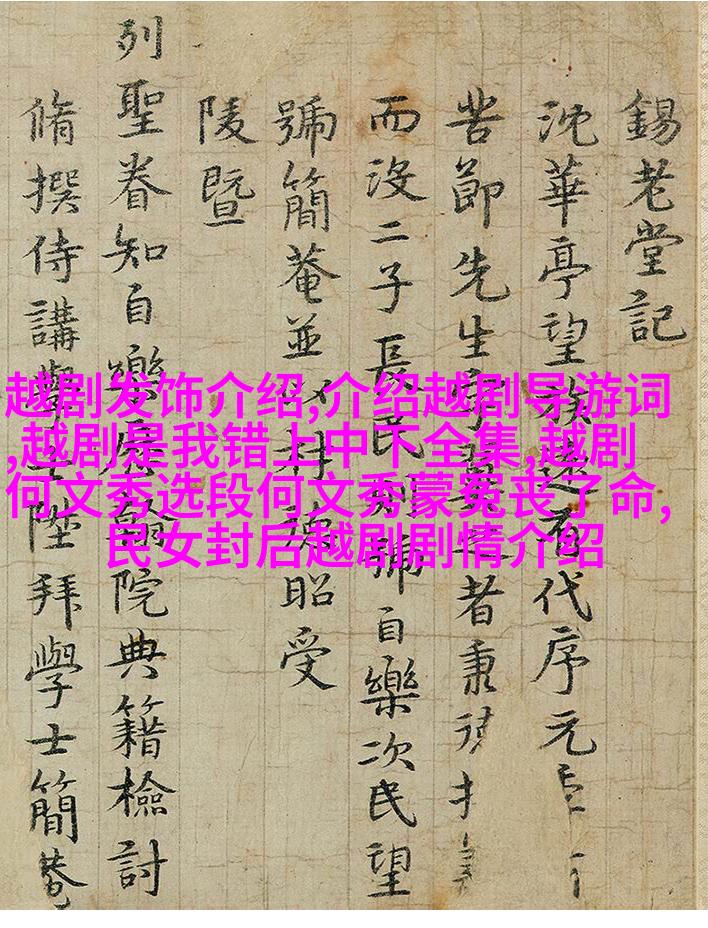 錫老堂記
沈華亭望族遠有代序元
苦節先生野具之者秉
而沒二子長民則號自樂次民望
號簡菴並以村謨昭受
陵暨
列聖眷知自樂歷翰院典籍檢討
脩撰侍講學士陞拜學士簡菴
越剧发饰介绍,介绍越剧导游词
,越剧是我错上中下全集,越剧
何文秀选段何文秀蒙冤丧了命,
民女封后越剧剧情介绍